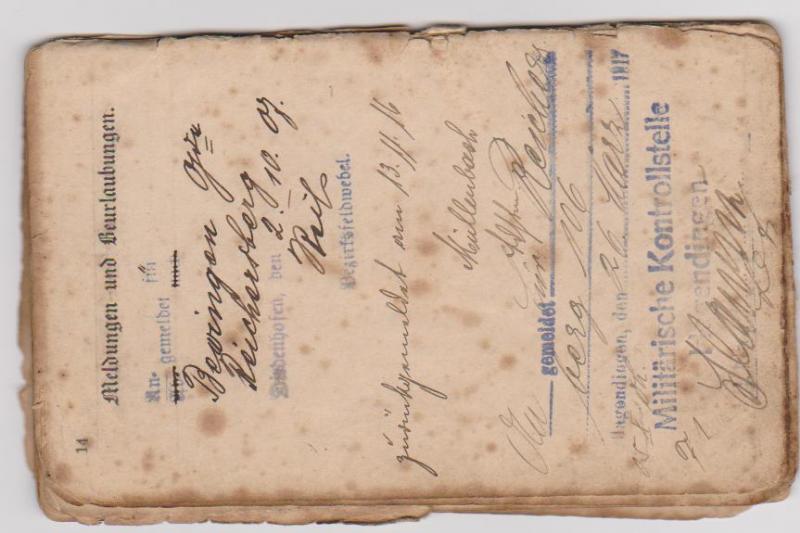 14
Meldungen und Beurlaubungen.
An- gemeldet für
Ab-
Bevingen Gde
Reichersberg
Diedenhofen, den 2. 10. 07.
Bezirksfeldwebel.
zurückgemeldet am 13. 11. 16
Müllenbach
An gemeldet für Reichers
berg
Hagendingen, den 26 März 1917
Militärische Kontrollstelle
Hagendingen